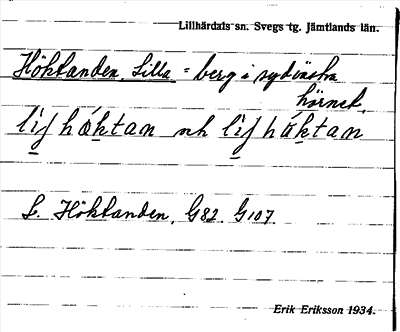 Lillhärdals sn. Svegs tg. Jämtlands län.
Höktanden, Lilla = berg i sydvästra
hörnet.
och
L. Höktanden, G82. G107.
Erik Eriksson 1934.